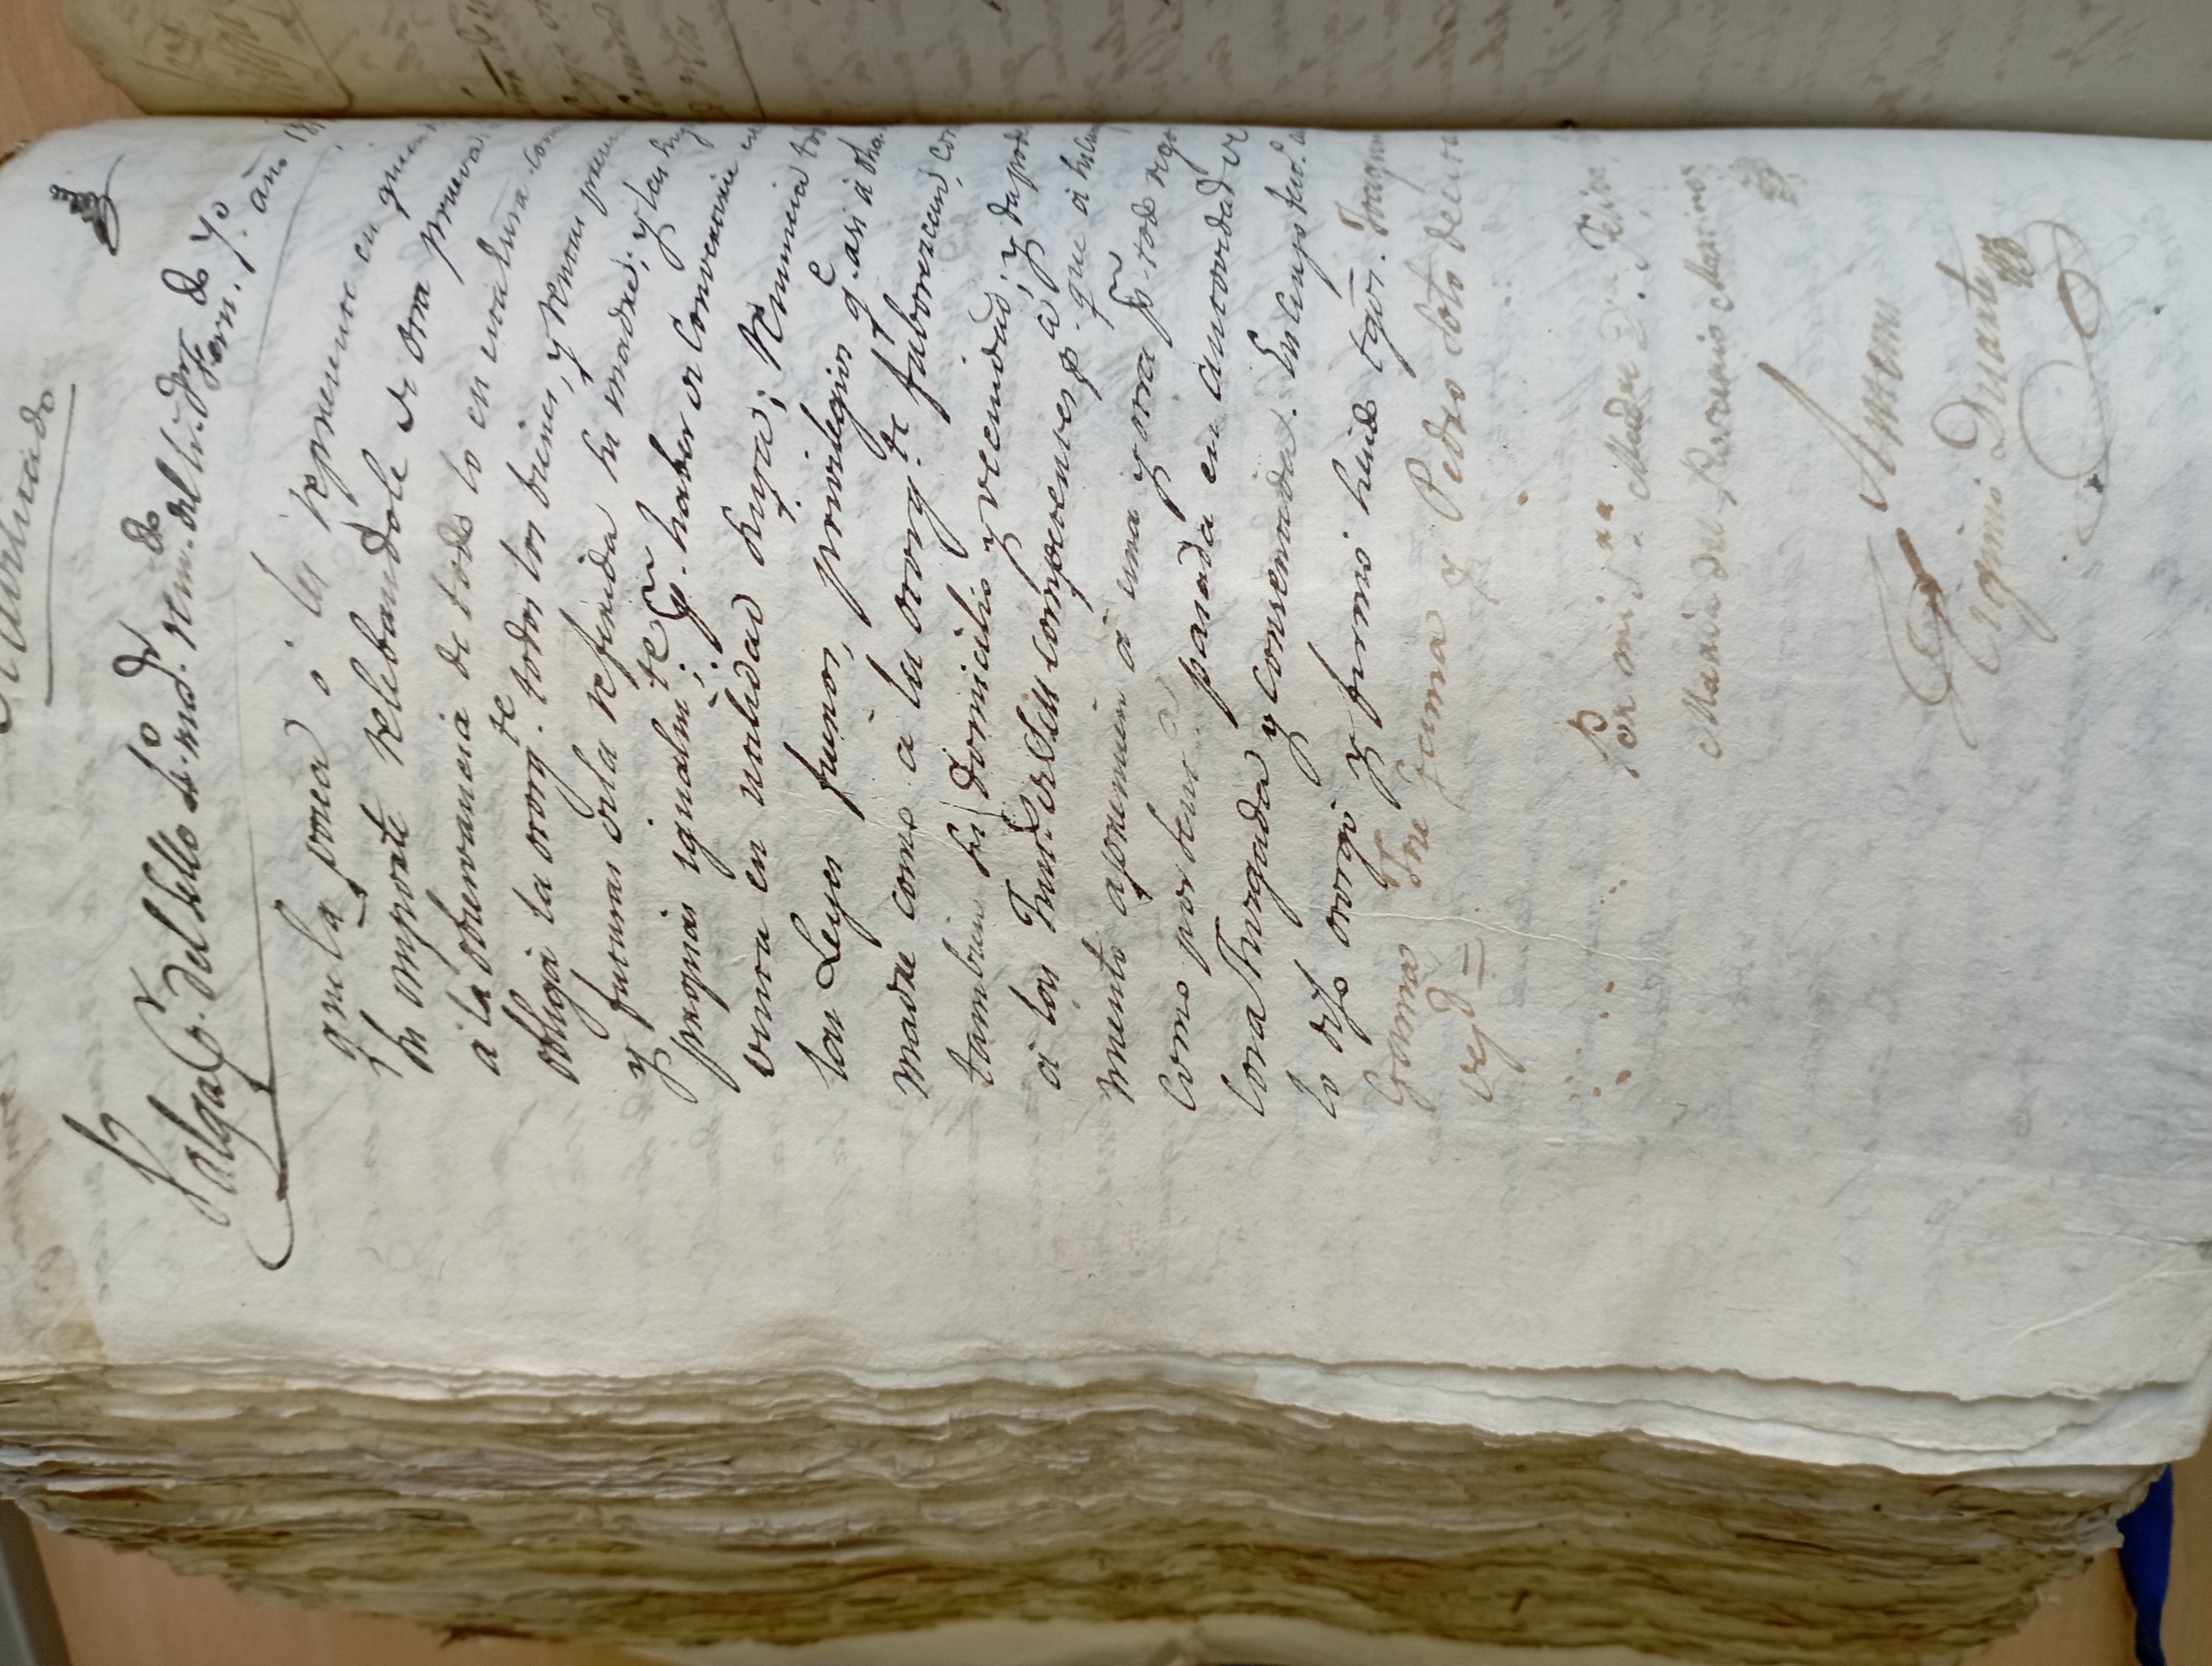 Valga p.r del sello 4.o md.r rein.do del Sr. D.n Fern.do 7.o año
que la posea ó les represente en quien
su importe relebandole de otra prueva
á la observancia de todo lo en escritura con
obliga la otorg.te todos los bienes, y rentas presen
y futuras dela referida su madre; y las suy
propias igualm.te; p.r haber de convertirse en
venta en utilidad suya; Renuncia tod
las Leyes fueros, privilegios q.e asi á dha
madre como á la otorg.te faborezcan, con
tambien su domicilio y vecindad; y da pode
á los de competentes p.a que á su cum
miento apremien á una y otra p.r todo rigo
como por sent.a pasada en autoridad de
cosa Jusgada y consentida. En cuyo
lo dijo otorgó y firmó siendo tgos. Joaquin
Gama José Gama y Pedro Soto de esta
vej.d =
Por mi S.ra Madre D.a Felipa
Maria del Rosario Martines
Ante mi
Higinio Duarte